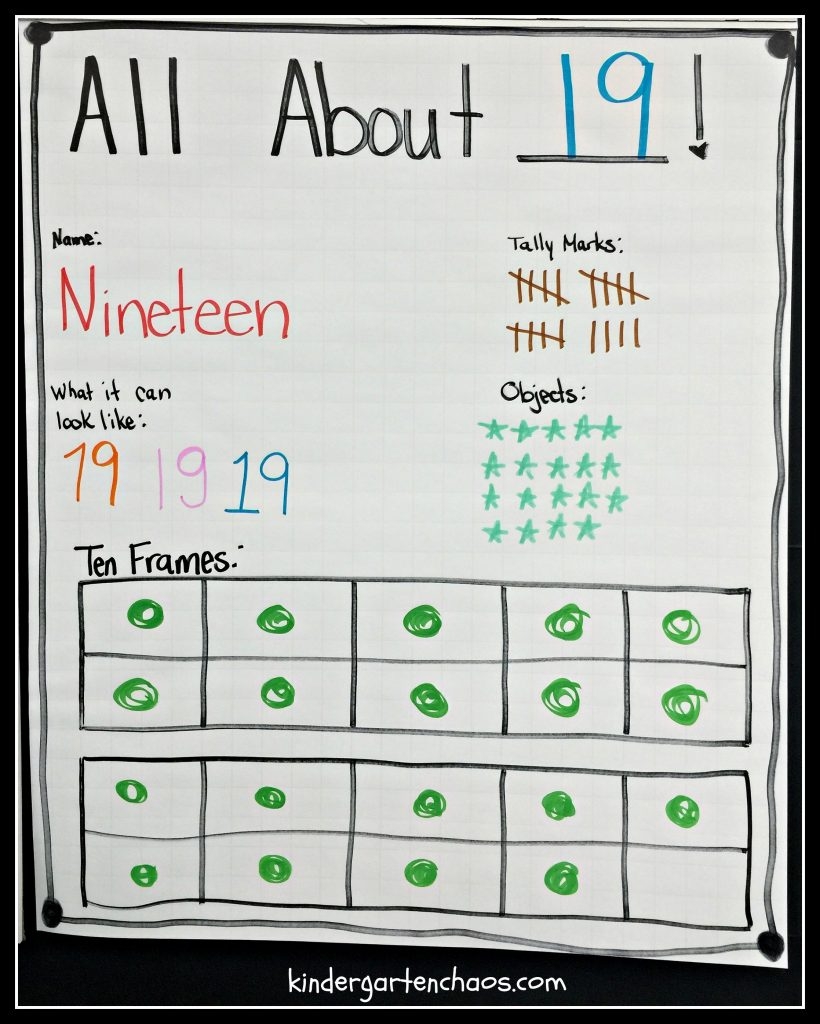 All About 19!
Name:
Nineteen
Tally Marks:
What it can
look like:
19 19 19
Objects:
Ten Frames:
kindergartenchaos.com